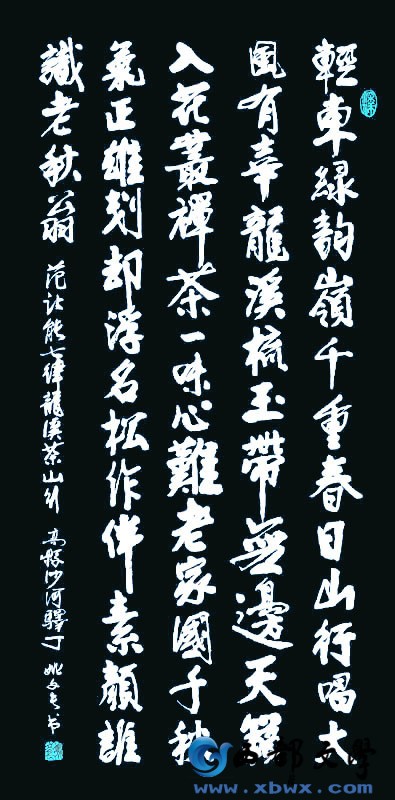 輕車綠韵嶺千重春日山行唱大
風有幸龍溪梳玉帶無邊天籟
入花叢禪茶一味心難老家國千秋
氣正雄剋却浮名松作伴素顏誰
識老秋翁
范詩能七律龍溪茶山行
沙河驛丁 姚 书
西部文學
www.xbwx.com